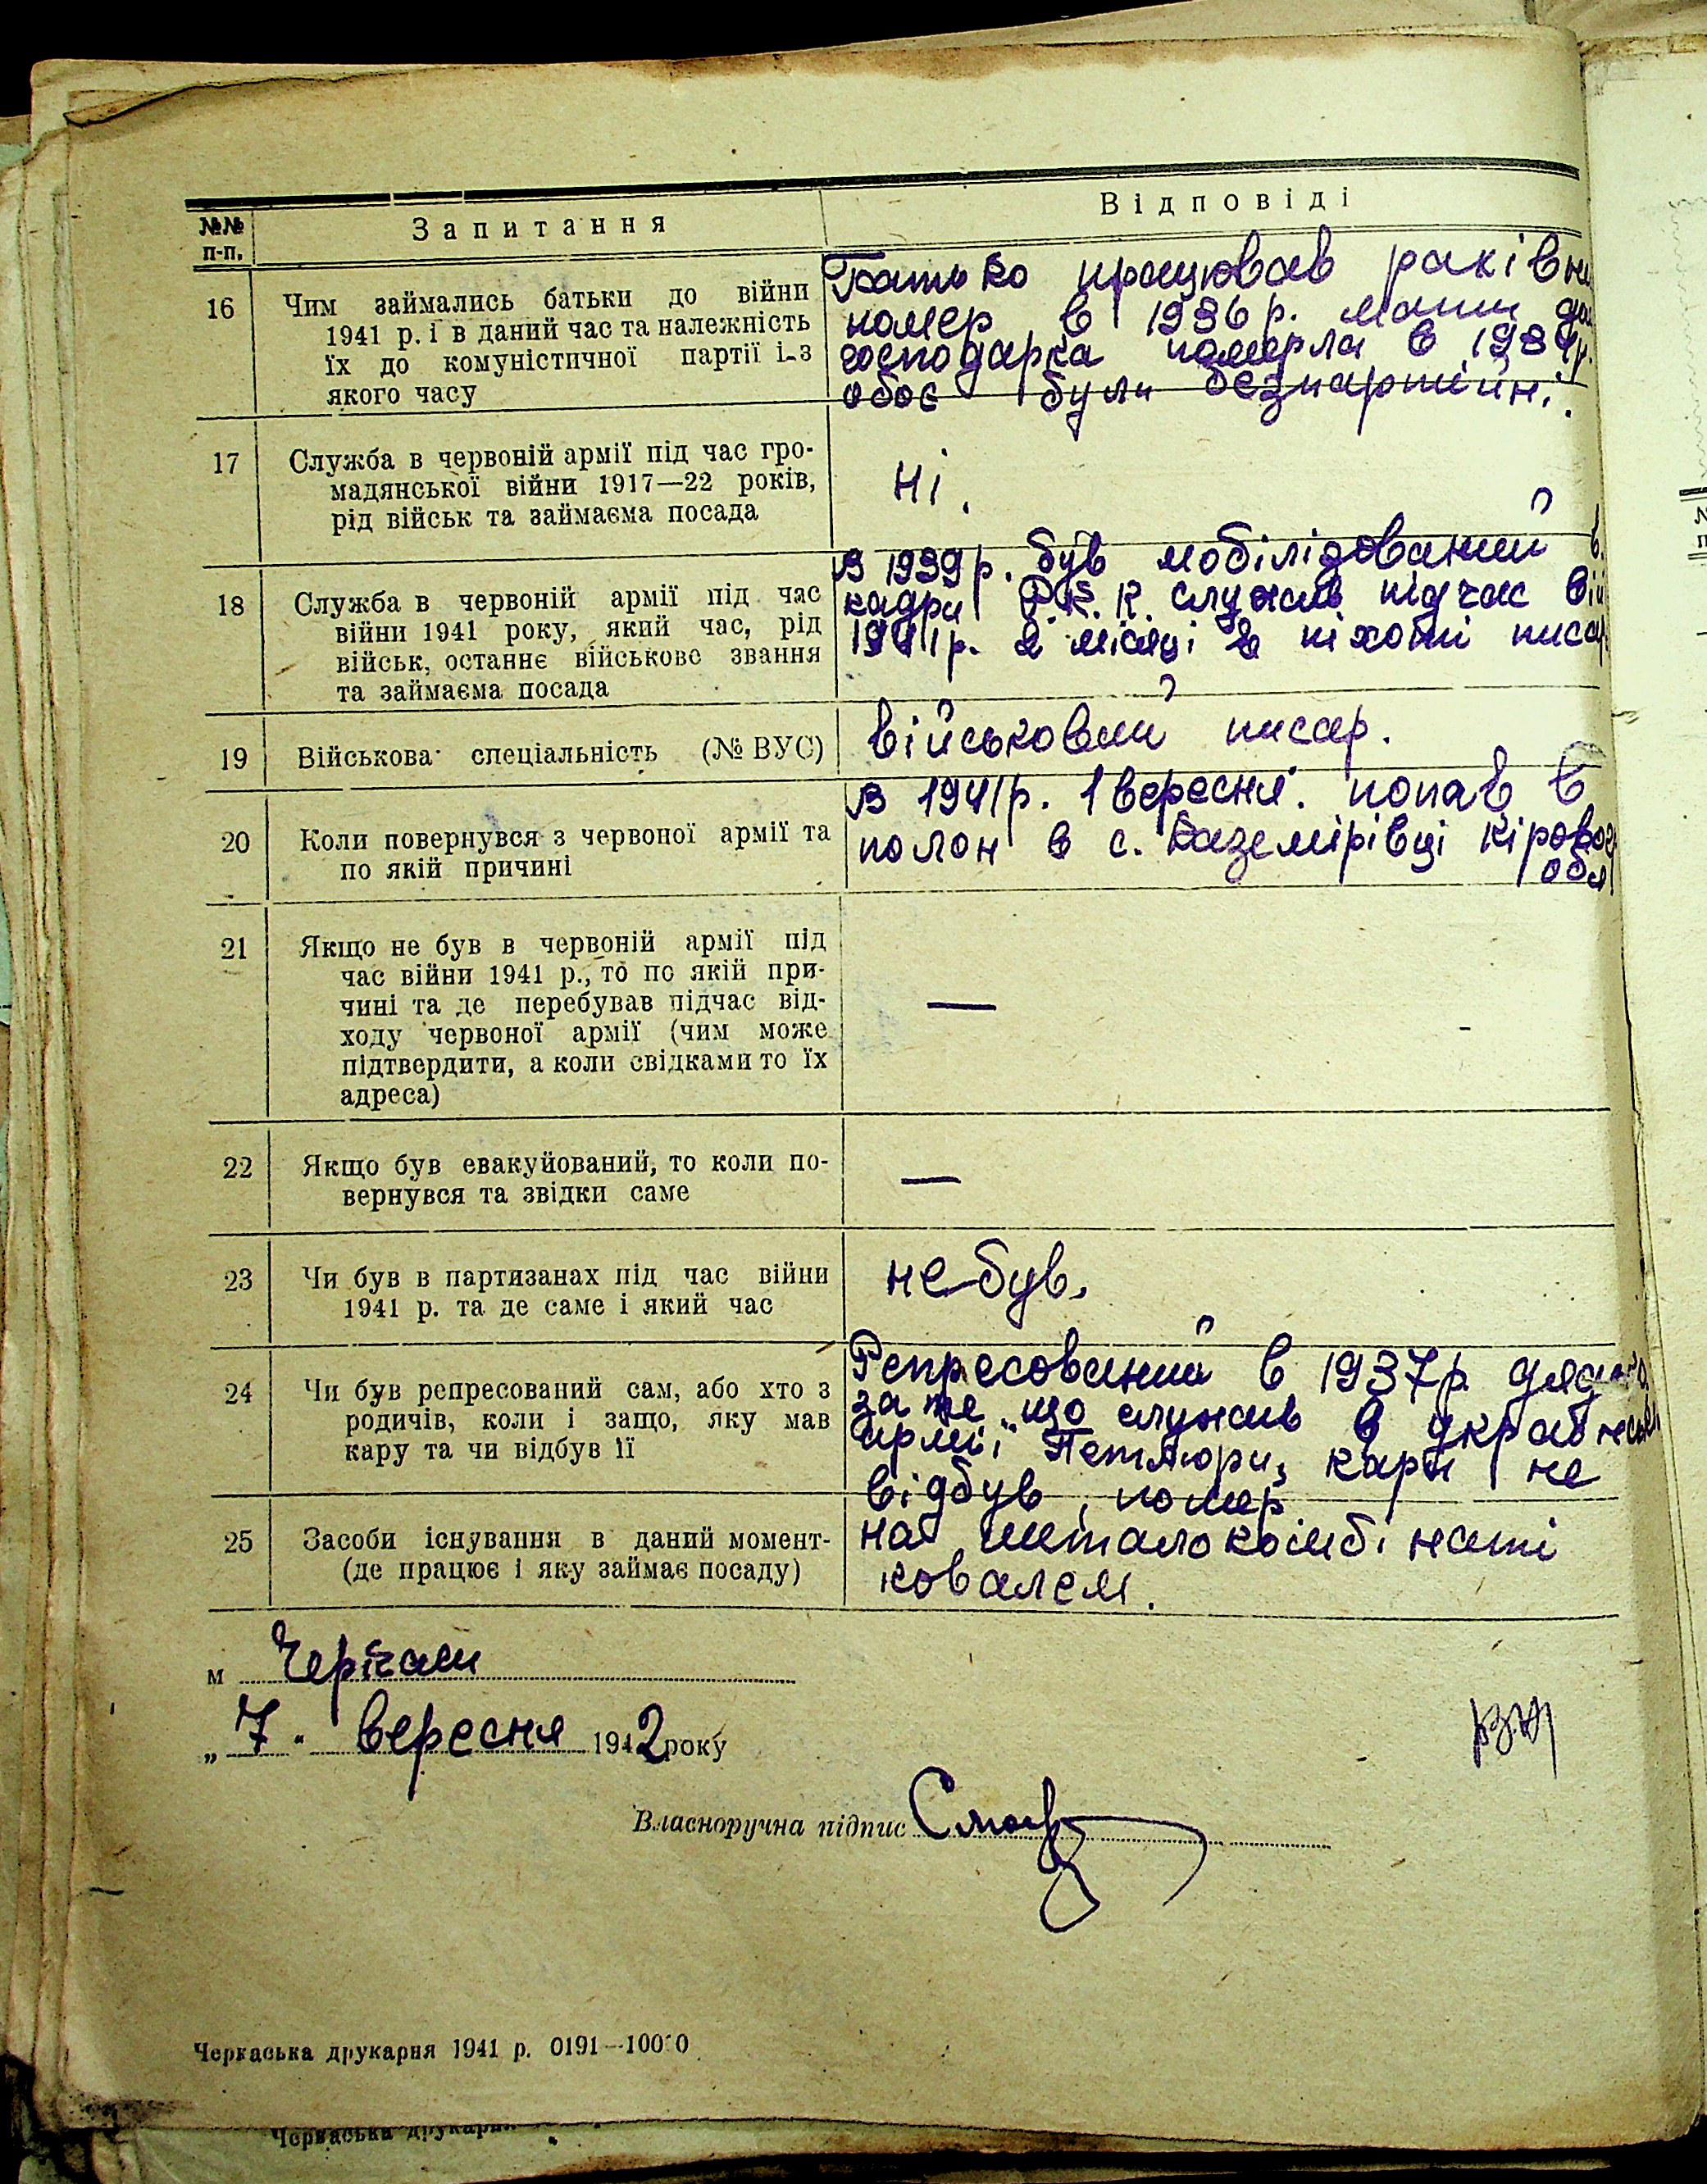 №№ п-п.
Запитання
Відповіді
16
Чим займались батьки до війни
1941 р. і в даний час та належність
їх до комуністичної партії і-з
якого часу
Батько працював
помер в 1936 р. мати
господарка померла в
обоє були безпартійн.
17
Служба в червоній армії під час гро-
мадянської війни 1917—22 років,
рід військ та займаєма посада
Ні.
18
Служба в червоній армії під час
війни 1941 року, який час, рід
військ, останнє військове звання
та займаєма посада
В 1939 р. був мобілізований в
кадри Р.К.К. служив підчас вій
1941 р. 2 місяці в піхоті писар
19
Військова спеціальність (№ ВУС)
військовий писар.
20
Коли повернувся з червоної армії та
по якій причині
В 1941 р. 1 вересня. попав в
полон в с. Каземірівці Кіровог
обл
21
Якщо не був в червоній армії під
час війни 1941 р., то по якій при-
чині та де перебував підчас від-
ходу червоної армії (чим може
підтвердити, а коли свідками то їх
адреса)
—
22
Якщо був евакуйований, то коли по-
вернувся та звідки саме
—
23
Чи був в партизанах під час війни
1941 р. та де саме і який час
не був.
24
Чи був репресований сам, або хто з
родичів, коли і защо, яку мав
кару та чи відбув її
Репресований в 1937 р. дядько
за те що служив в
армії Петлюри, кари не
відбув, помер
25
Засоби існування в даний момент-
(де працює і яку займає посаду)
на метало комбінаті
ковалем.
м Черкаси
„ 7 “ вересня 1942 року
Власноручна підпис
Черкаська друкарня 1941 р. 0191—10000
Черкаська друкарн